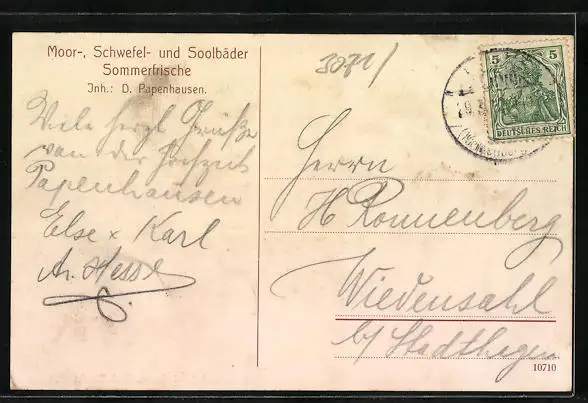 Moor-, Schwefel- und Soolbäder
Sommerfrische
Inh.: D. Papenhausen.
Viele herzl. Grüße
von der Hochzeit
Papenhausen
Else x Karl
3071/
5 5
DEUTSCHES REICH
Herrn
H Ronnenberg
Wiedensahl
b/ Stadthagen
10710